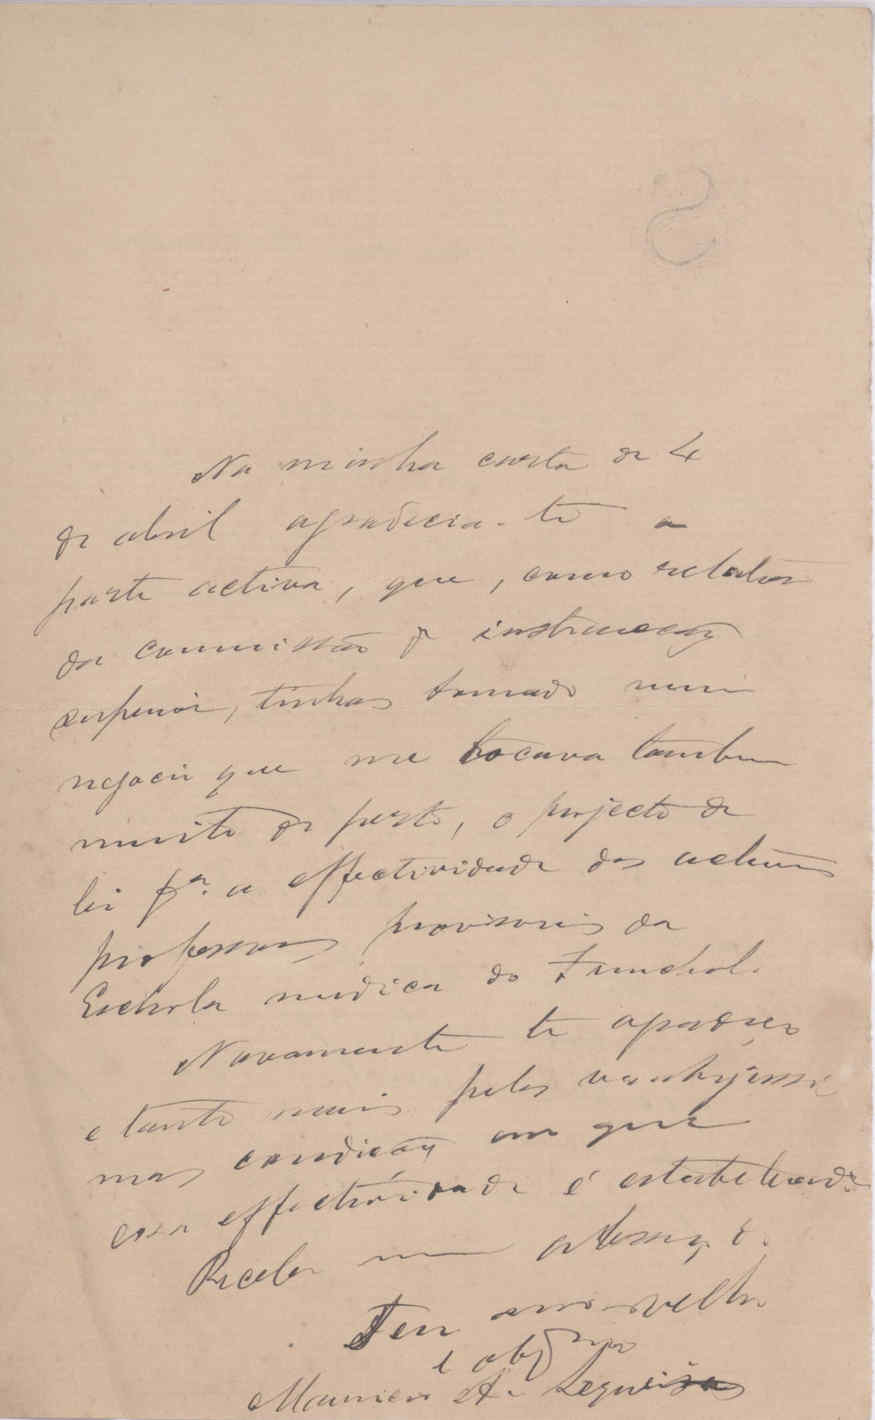 Na minha carta de 4
de abril agradecia-te a
parte activa, que, como relator
da commissão de instrucção
superior, tinhas tomado num
negocio que me tocava tambem
muito de perto, o projecto de
lei p.ª a effectividade dos actuaes
professores provisorios da
Eschola medica do Funchal.
Novamente te agradeço
e tanto mais pelas vantajosissi
mas condições em que
essa effectividade é estabelecida.
Recebe um abraço de
Teu am.º velho
e obg.mo
A. Sequeira